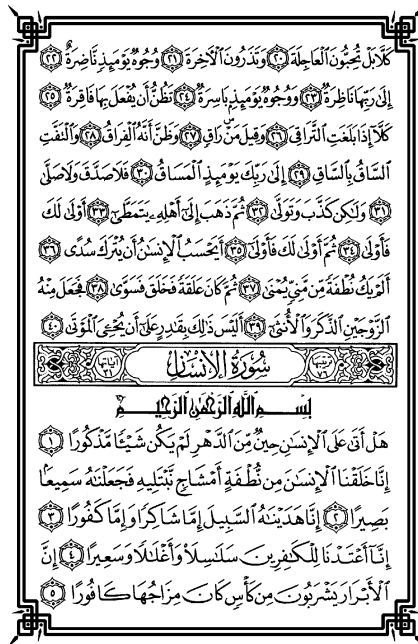 كَلَّا بَلْ تُحِبُّونَ الْعَاجِلَةَ ٢٠ وَتَذَرُونَ الْآخِرَةَ ٢١ وُجُوهٌ يَوْمَئِذٍ نَّاضِرَةٌ ٢٢
إِلَىٰ رَبِّهَا نَاظِرَةٌ ٢٣ وَوُجُوهٌ يَوْمَئِذٍ بَاسِرَةٌ ٢٤ تَظُنُّ أَن يُفْعَلَ بِهَا فَاقِرَةٌ ٢٥
كَلَّا إِذَا بَلَغَتِ التَّرَاقِيَ ٢٦ وَقِيلَ مَنْ ۜ رَاقٍ ٢٧ وَظَنَّ أَنَّهُ الْفِرَاقُ ٢٨ وَالْتَفَّتِ
السَّاقُ بِالسَّاقِ ٢٩ إِلَىٰ رَبِّكَ يَوْمَئِذٍ الْمَسَاقُ ٣٠ فَلَا صَدَّقَ وَلَا صَلَّىٰ
٣١ وَلَٰكِن كَذَّبَ وَتَوَلَّىٰ ٣٢ ثُمَّ ذَهَبَ إِلَىٰ أَهْلِهِ يَتَمَطَّىٰ ٣٣ أَوْلَىٰ لَكَ
فَأَوْلَىٰ ٣٤ ثُمَّ أَوْلَىٰ لَكَ فَأَوْلَىٰ ٣٥ أَيَحْسَبُ الْإِنسَانُ أَن يُتْرَكَ سُدًى ٣٦
أَلَمْ يَكُ نُطْفَةً مِّن مَّنِيٍّ يُمْنَىٰ ٣٧ ثُمَّ كَانَ عَلَقَةً فَخَلَقَ فَسَوَّىٰ ٣٨ فَجَعَلَ مِنْهُ
الزَّوْجَيْنِ الذَّكَرَ وَالْأُنثَىٰ ٣٩ أَلَيْسَ ذَٰلِكَ بِقَادِرٍ عَلَىٰ أَن يُحْيِيَ الْمَوْتَىٰ ٤٠
ترتيبها ٧٦ سُورَةُ الْإِنسَان آياتها ٣١
بِسْمِ اللَّهِ الرَّحْمَٰنِ الرَّحِيمِ
هَلْ أَتَىٰ عَلَى الْإِنسَانِ حِينٌ مِّنَ الدَّهْرِ لَمْ يَكُن شَيْئًا مَّذْكُورًا ١
إِنَّا خَلَقْنَا الْإِنسَانَ مِن نُّطْفَةٍ أَمْشَاجٍ نَّبْتَلِيهِ فَجَعَلْنَاهُ سَمِيعًا
بَصِيرًا ٢ إِنَّا هَدَيْنَاهُ السَّبِيلَ إِمَّا شَاكِرًا وَإِمَّا كَفُورًا ٣
إِنَّا أَعْتَدْنَا لِلْكَافِرِينَ سَلَاسِلَا۟ وَأَغْلَالًا وَسَعِيرًا ٤ إِنَّ
الْأَبْرَارَ يَشْرَبُونَ مِن كَأْسٍ كَانَ مِزَاجُهَا كَافُورًا ٥